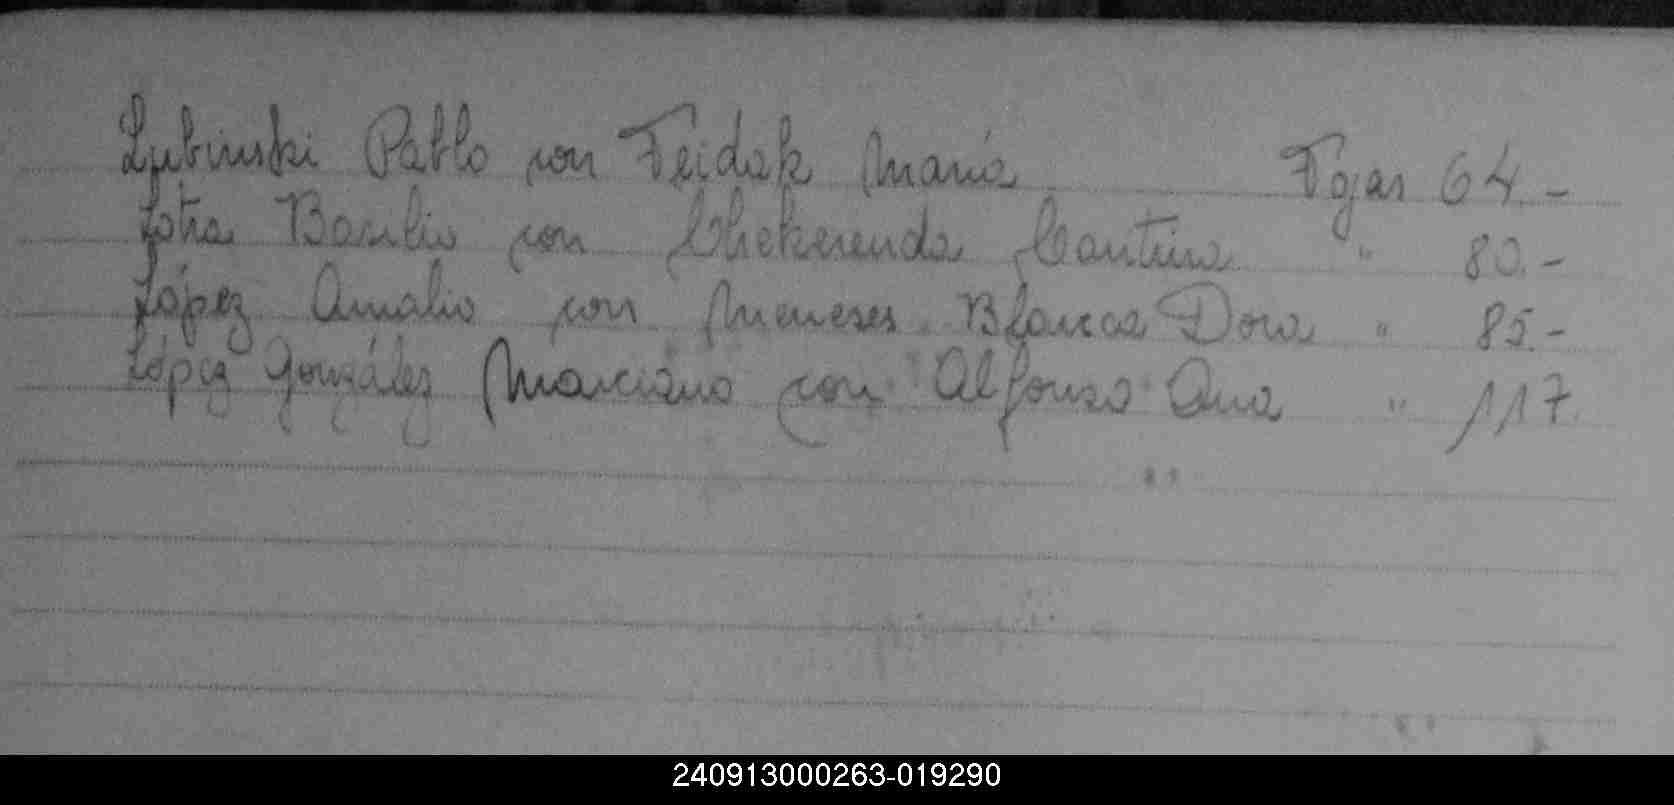 Lubinski Pablo con Feidak María Fojas 64.-
Lotra Basilio con Chekerenda Cantina " 80.-
López Amalio con Meneses Blanca Dora " 85.-
López González Marciano con Alfonso Ana " 117.
240913000263-019290